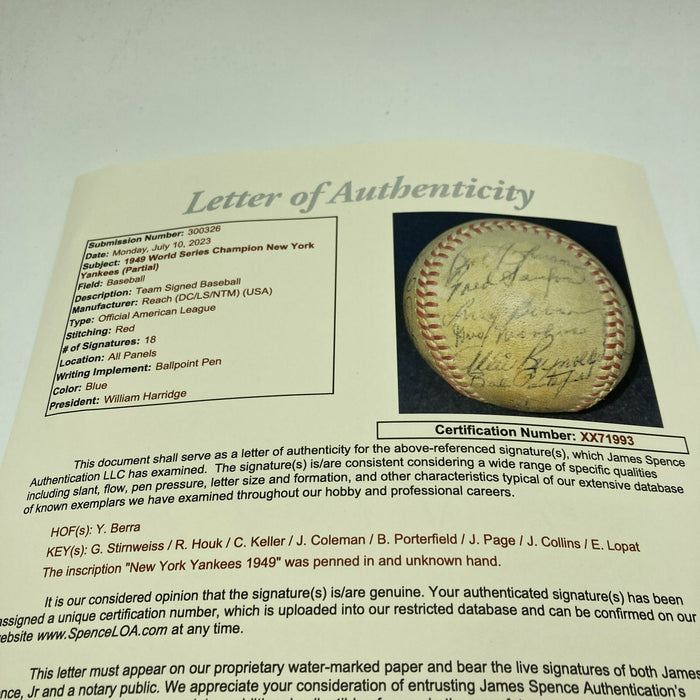 Letter of Authenticity
Submission Number: 300326
Date: Monday, July 10, 2023
Subject: 1949 World Series Champion New York
Yankees (Partial)
Field: Baseball
Description: Team Signed Baseball
Manufacturer: Reach (DC/LS/NTM) (USA)
Type: Official American League
Stitching: Red
# of Signatures: 18
Location: All Panels
Writing Implement: Ballpoint Pen
Color: Blue
President: William Harridge
Fred Sanford
Certification Number: XX71993
This document shall serve as a letter of authenticity for the above-referenced signature(s), which James Spence
Authentication LLC has examined. The signature(s) is/are consistent considering a wide range of specific qualities
including slant, flow, pen pressure, letter size and formation, and other characteristics typical of our extensive database
of known exemplars we have examined throughout our hobby and professional careers.
HOF(s): Y. Berra
KEY(s): G. Stirnweiss / R. Houk / C. Keller / J. Coleman / B. Porterfield / J. Page / J. Collins / E. Lopat
The inscription "New York Yankees 1949" was penned in and unknown hand.
It is our considered opinion that the signature(s) is/are genuine. Your authenticated signature(s) has been
assigned a unique certification number, which is uploaded into our restricted database and can be confirmed on our
website www.SpenceLOA.com at any time.
This letter must appear on our proprietary water-marked paper and bear the live signatures of both James
nce, Jr and a notary public. We appreciate your consideration of entrusting James Spence Authentication's